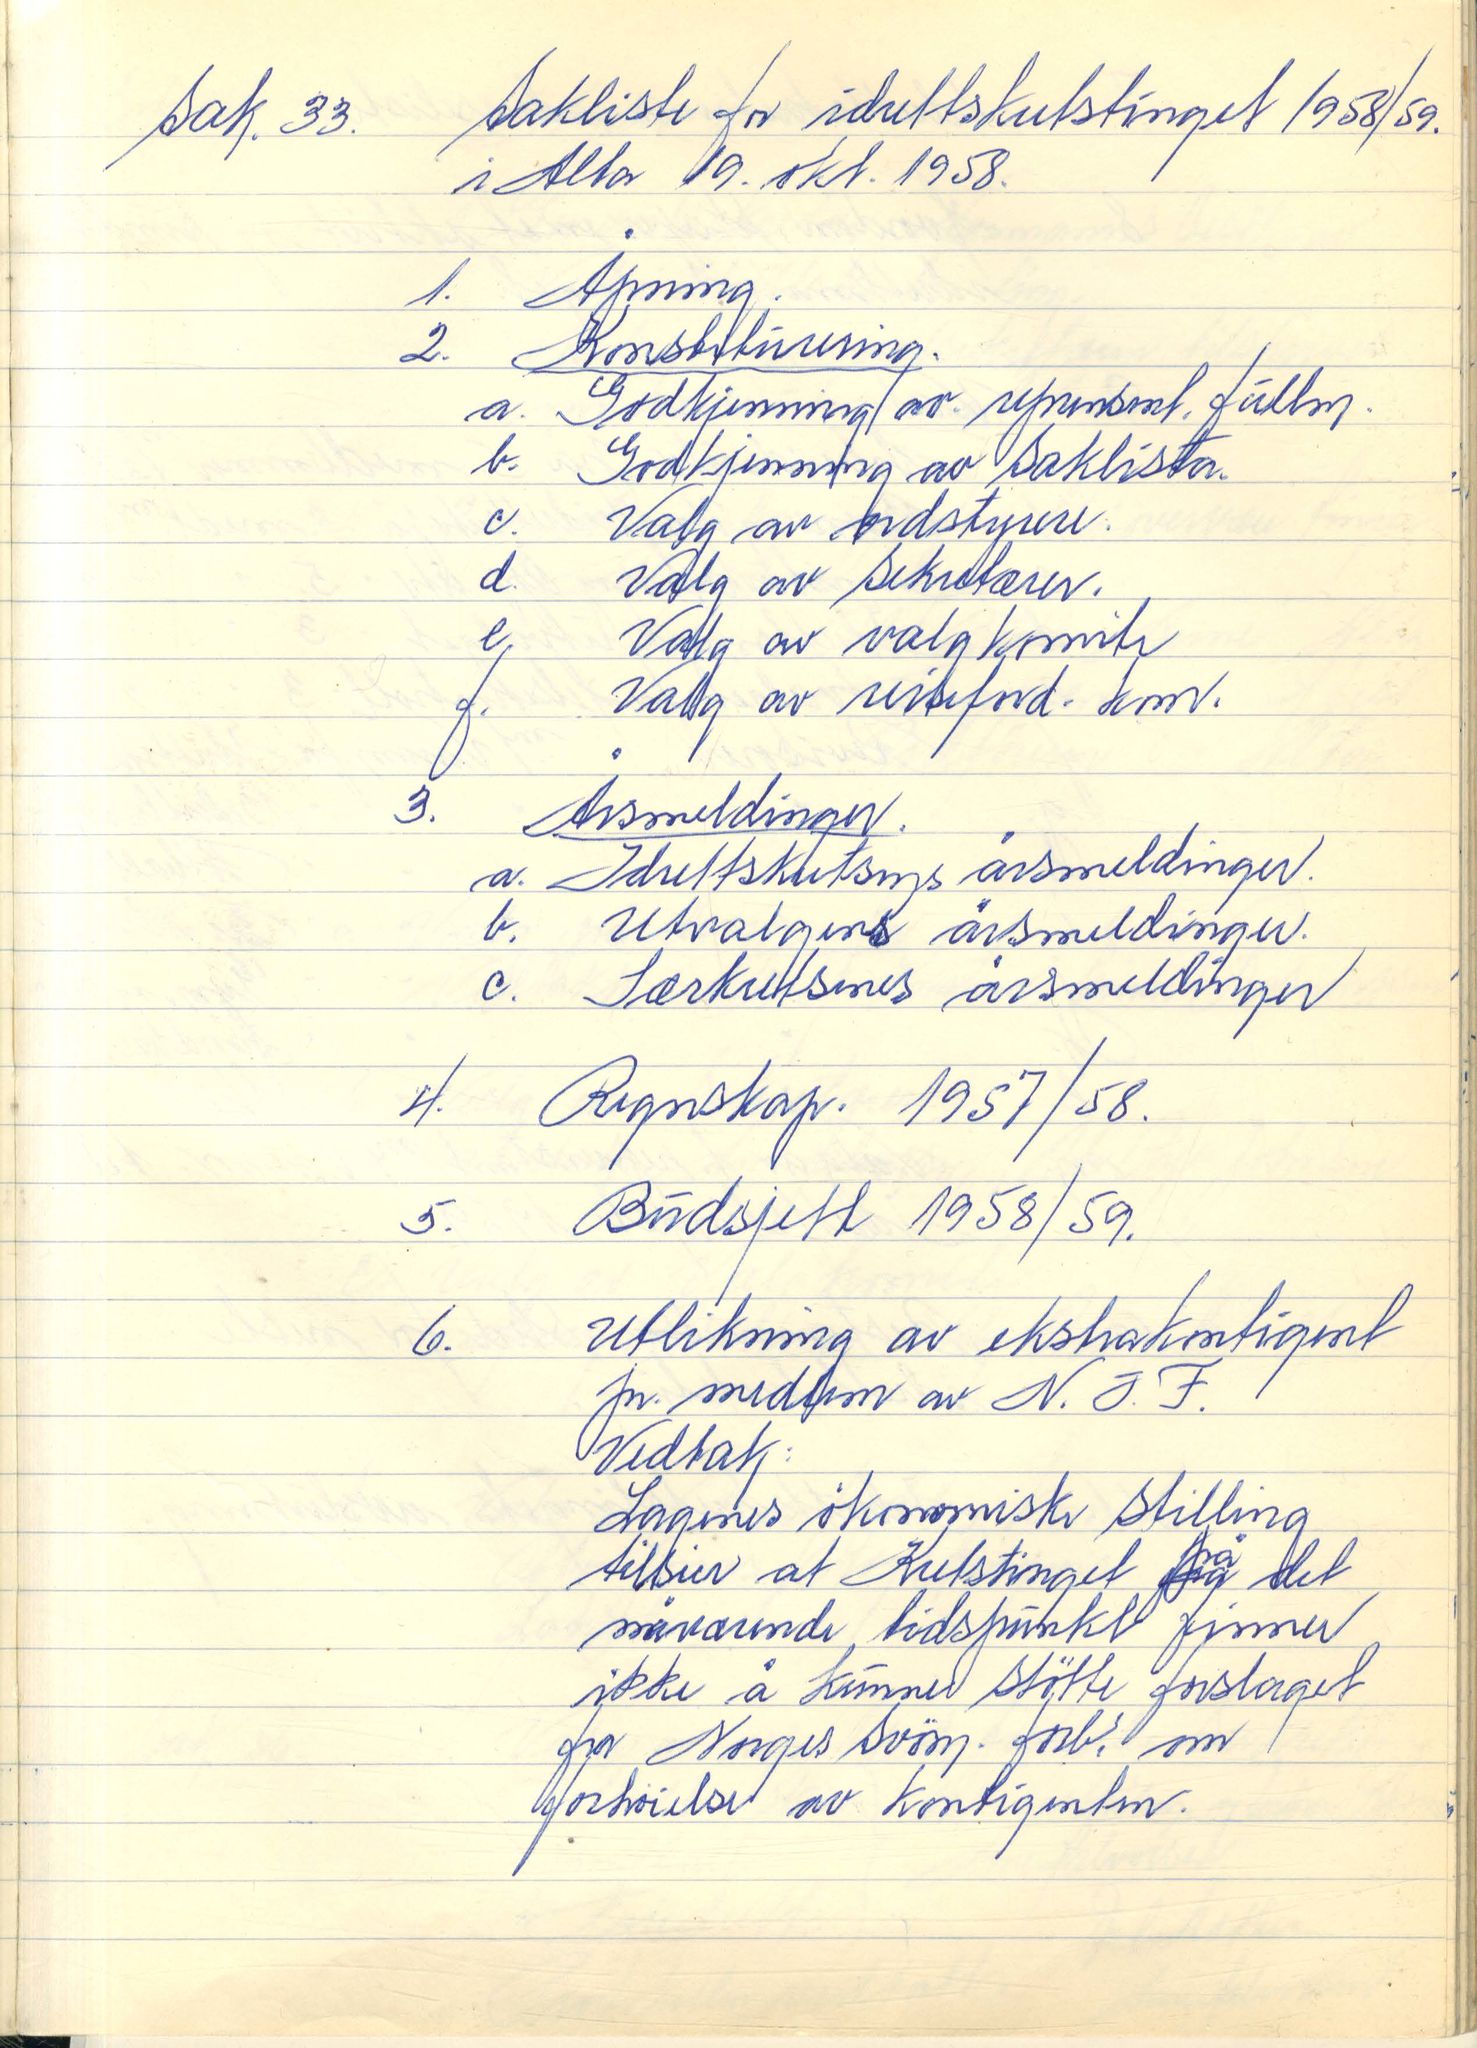 Sak. 33. Sakliste for idrettskretstinget 1958/59.
i Alta 19. okt. 1958.
1. Åpning.
2. Konstituering.
a. Godkjenning av represent. fullm.
b. Godkjenning av Saklista.
c. Valg av ordstyrere.
d. Valg av Sekretærer.
e. Valg av valgkomite
f. Valg av reiseford. kom.
3. Årsmeldinger.
a. Idrettskretsens årsmeldinger.
b. Utvalgenes årsmeldinger.
c. Særkretsenes årsmeldinger
4. Regnskap. 1957/58.
5. Budsjett 1958/59.
6. Utlikning av ekstrakontigent
pr. medlem av N.I.F.
Vedtak:
Lagenes ökonomiske Stilling
tilsier at Kretstinget på det
nåværende tidspunkt finner
ikke å kunne Stötte forslaget
fra Norges Svöm. forb. om
forhöielse av kontigenten.